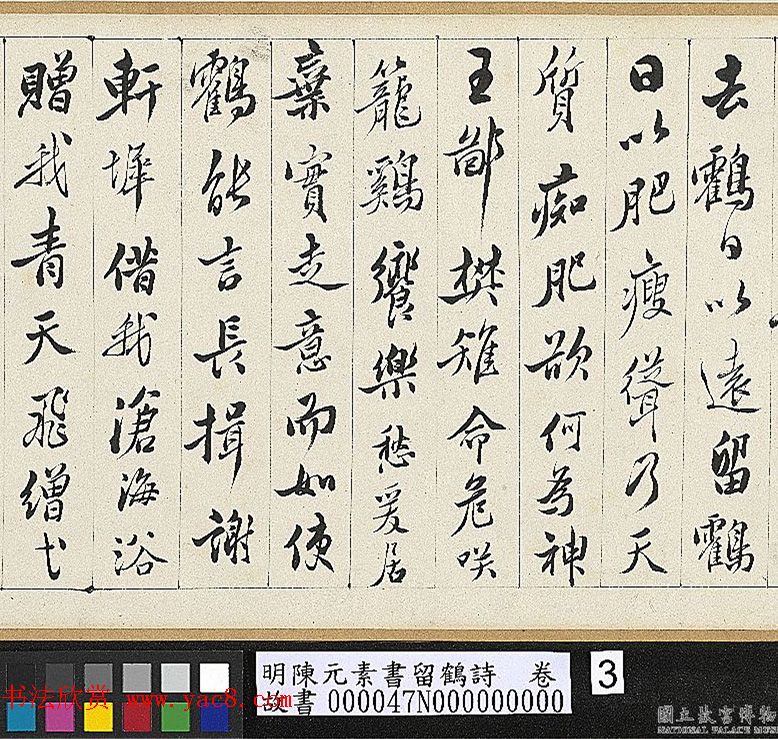 去鶴日以遠留鶴
日以肥瘦聳乃天
質痴肥欲何為神
王鄙樊雉命危咲
籠鷄饗樂愁爰居
棄實走意而如使
鶴能言長揖謝
軒墀借我滄海浴
贈我青天飛繒弋
明陳元素書留鶴詩 卷
故書 000047N000000000
3
书法欣赏 www.yac8.com
國立故宮博物
NATIONAL PALACE MUSE